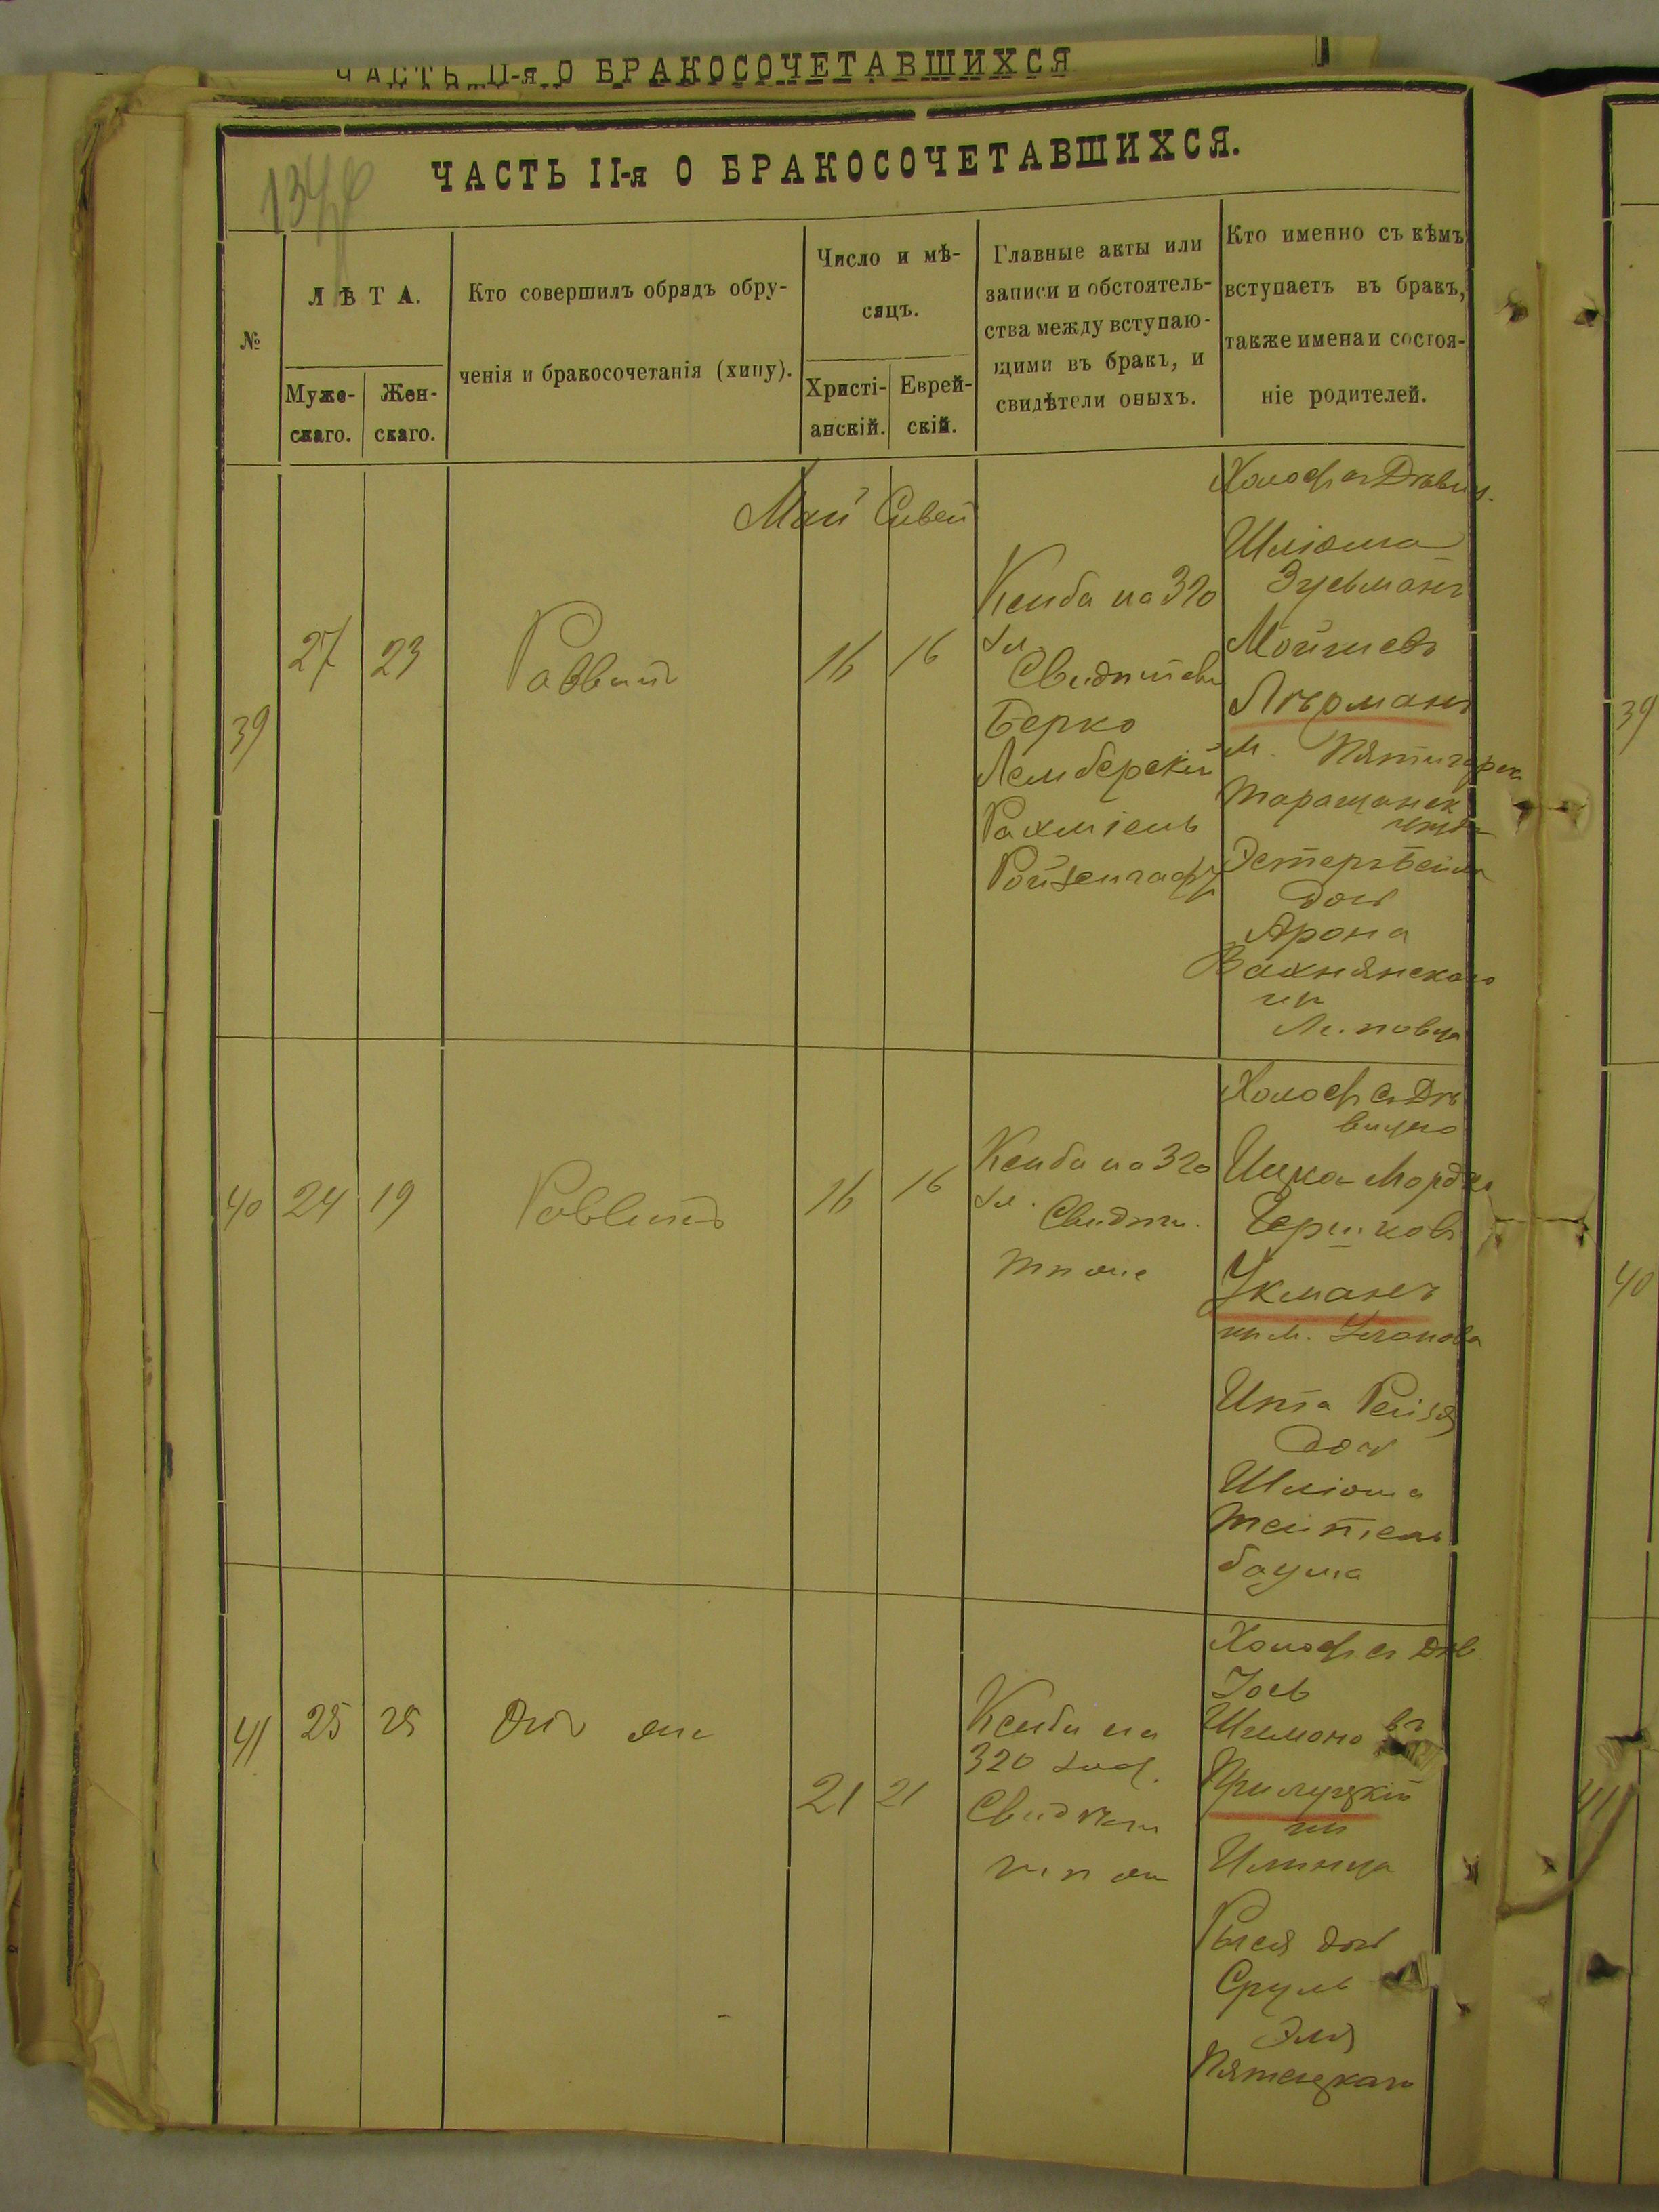 ЧАСТЬ II-я О БРАКОСОЧЕТАВШИХСЯ
ЧАСТЬ II-я О БРАКОСОЧЕТАВШИХСЯ.
134
№
ЛѢТА.
Муже-
скаго.
Жен-
скаго.
Кто совершилъ обрядъ обру-
ченія и бракосочетанія (хипу).
Число и мѣ-
сяцъ.
Христі-
анскій.
Еврей-
скій.
Главные акты или
записи и обстоятель-
ства между вступаю-
щими въ бракъ, и
свидѣтели оныхъ.
Кто именно съ кѣмъ
вступаетъ въ бракъ,
также имена и состоя-
ніе родителей.
Май Сивен
39
27
23
Раввинъ
16
16
Кенба на 320
зл
Свидѣтели
Берко
Лемберскій
Рахміель
Ройзенгафъ
Холос съ Дѣвиц.
Шліома
Зусьманъ
Мойшевъ
Лерманъ
м. Пятигоръ
Таращанск
уѣзда
Эстеръ Бейла
доч
Арона
Вахнянскаго
из
Липовца
40
24
19
Раввинъ
16
16
Кенба на 320
зл.
Свидѣт.
тѣ же
Холос съ Дѣ
вицею
Ицко-Мордко
Гершковъ
Укманъ
из м.
Ита Рейзя
доч
Шліома
Тейтель
баума
41
25
25
Онъ же
21
21
Кенба на
320 зл.
Свидѣтели
тѣ же
Холос съ Дѣв
Іось
Шимоновъ
Прилуцкій
из
Илинца
Рися доч
Сруль
Эля
Пятецкаго
39
40
41